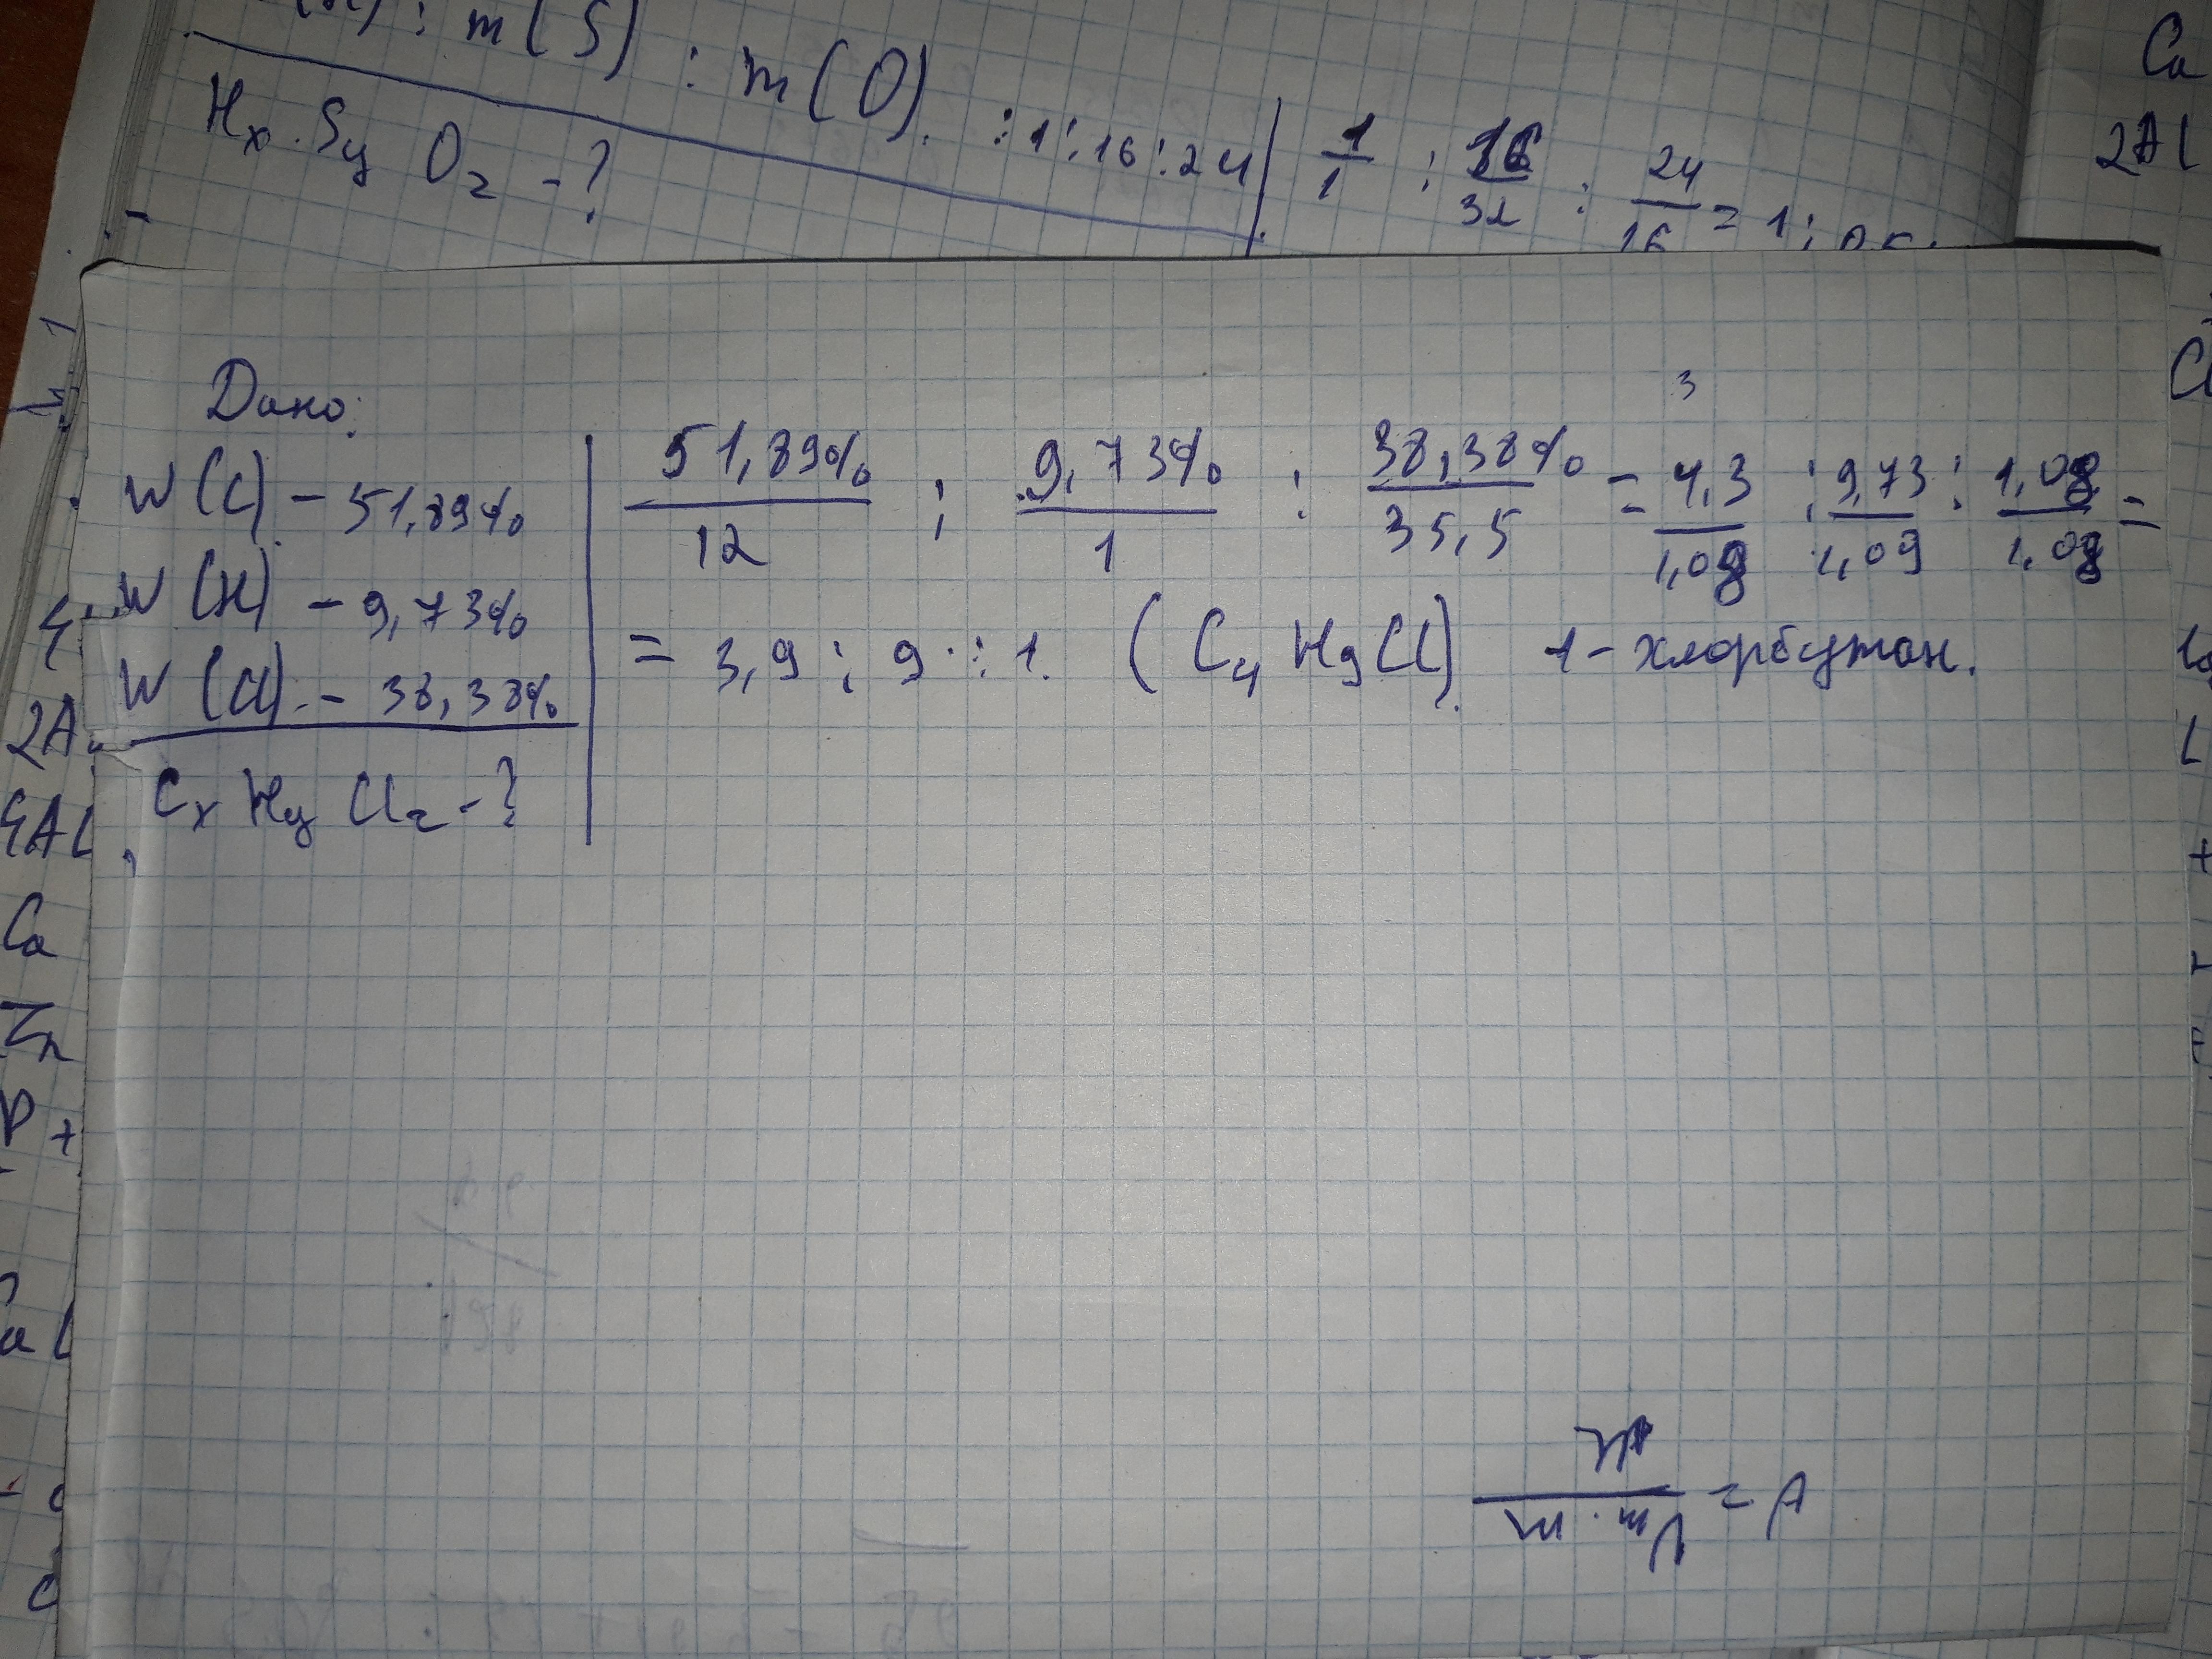 : m(S) : m(O) : 1 : 16 : 24
HxSyOz - ?
1/1 : 16/32 : 24/16 = 1 :
Ca
2Al
Дано:
W(C) - 51,89%
W(H) - 9,73%
W(Cl) - 38,38%
CxHyClz - ?
3
51,89%/12 : 9,73%/1 : 38,38%/35,5 = 4,3/1,08 : 9,73/1,09 : 1,08/1,08 =
= 3,9 : 9 : 1. (C4H9Cl) 1-хлорбутан.
2A
4Al
Ca
Zn
P +
V = Vm · m / M